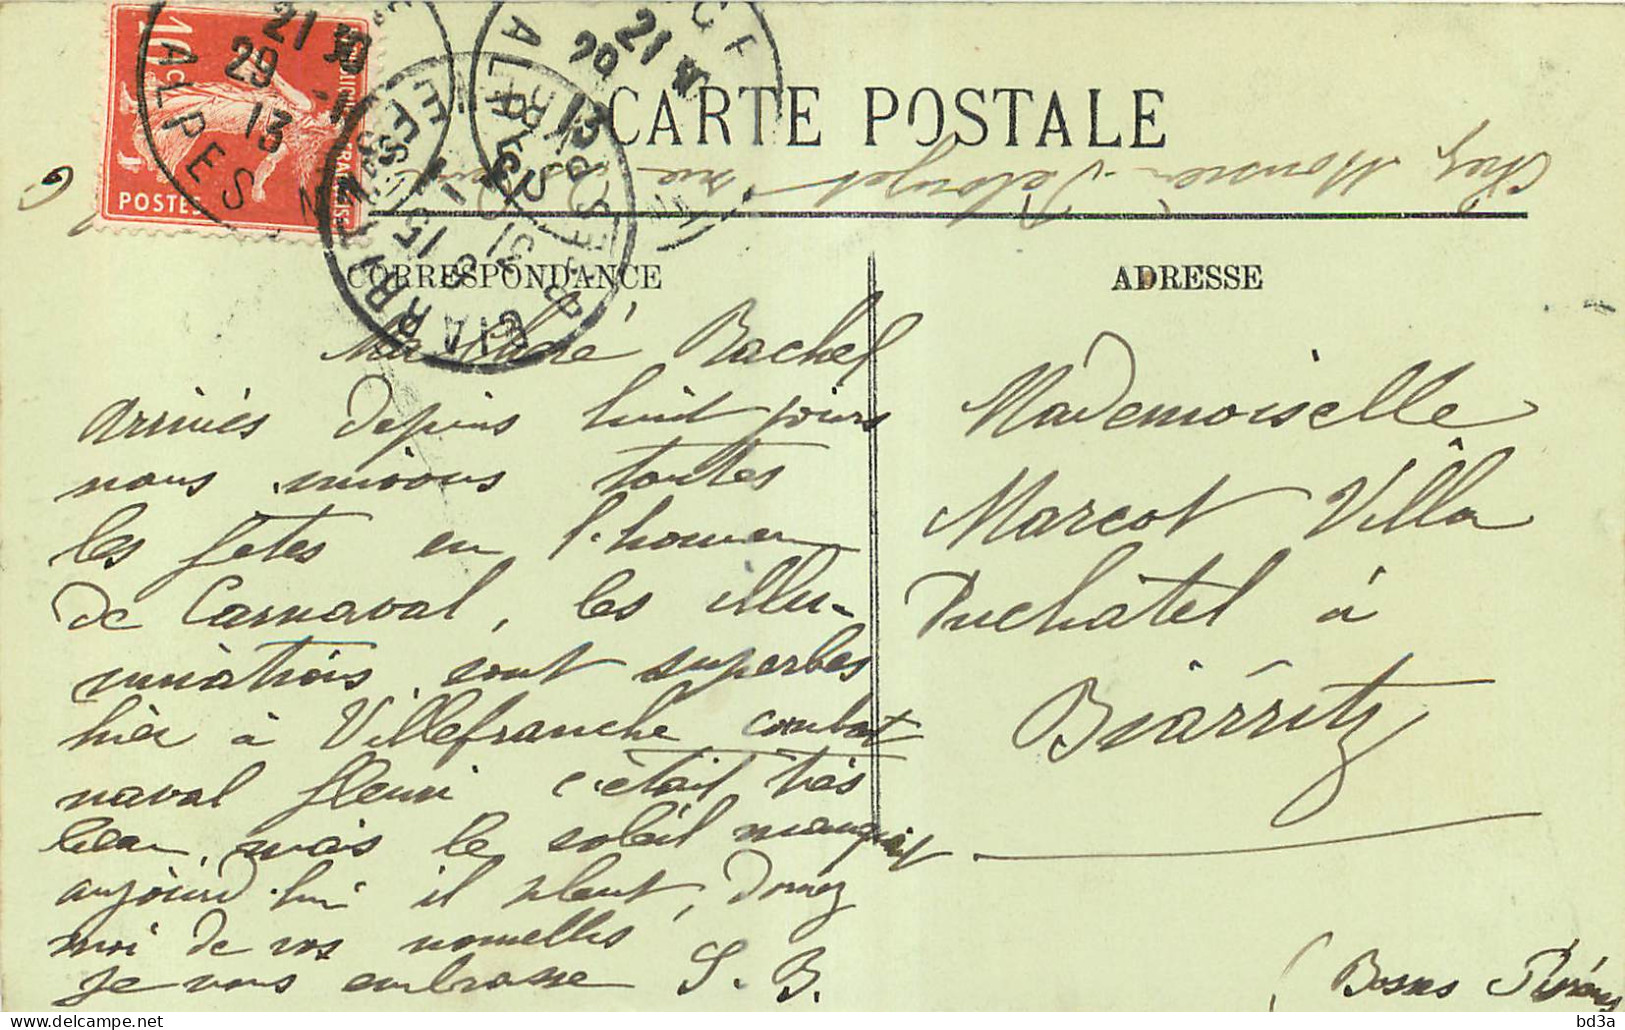 CARTE POSTALE
Chez Monsieur rue
CORRESPONDANCE
ADRESSE
10c
POSTES
21 30
29 -1
13
ALPES
BIARRITZ
Ma chère Rachel
arrivés depuis huit jours
nous suivons toutes
les fêtes en l'honneur
de Carnaval, les illu-
minations sont superbes
hier à Villefranche combat
naval fleuri c'était très
beau, mais le soleil manquait
aujourd'hui il pleut, Donnez
moi de vos nouvelles
Je vous embrasse S. B.
Mademoiselle
Marcot Villa
Duchâtel à
Biarritz
(Basses Pyrénées
bd3a